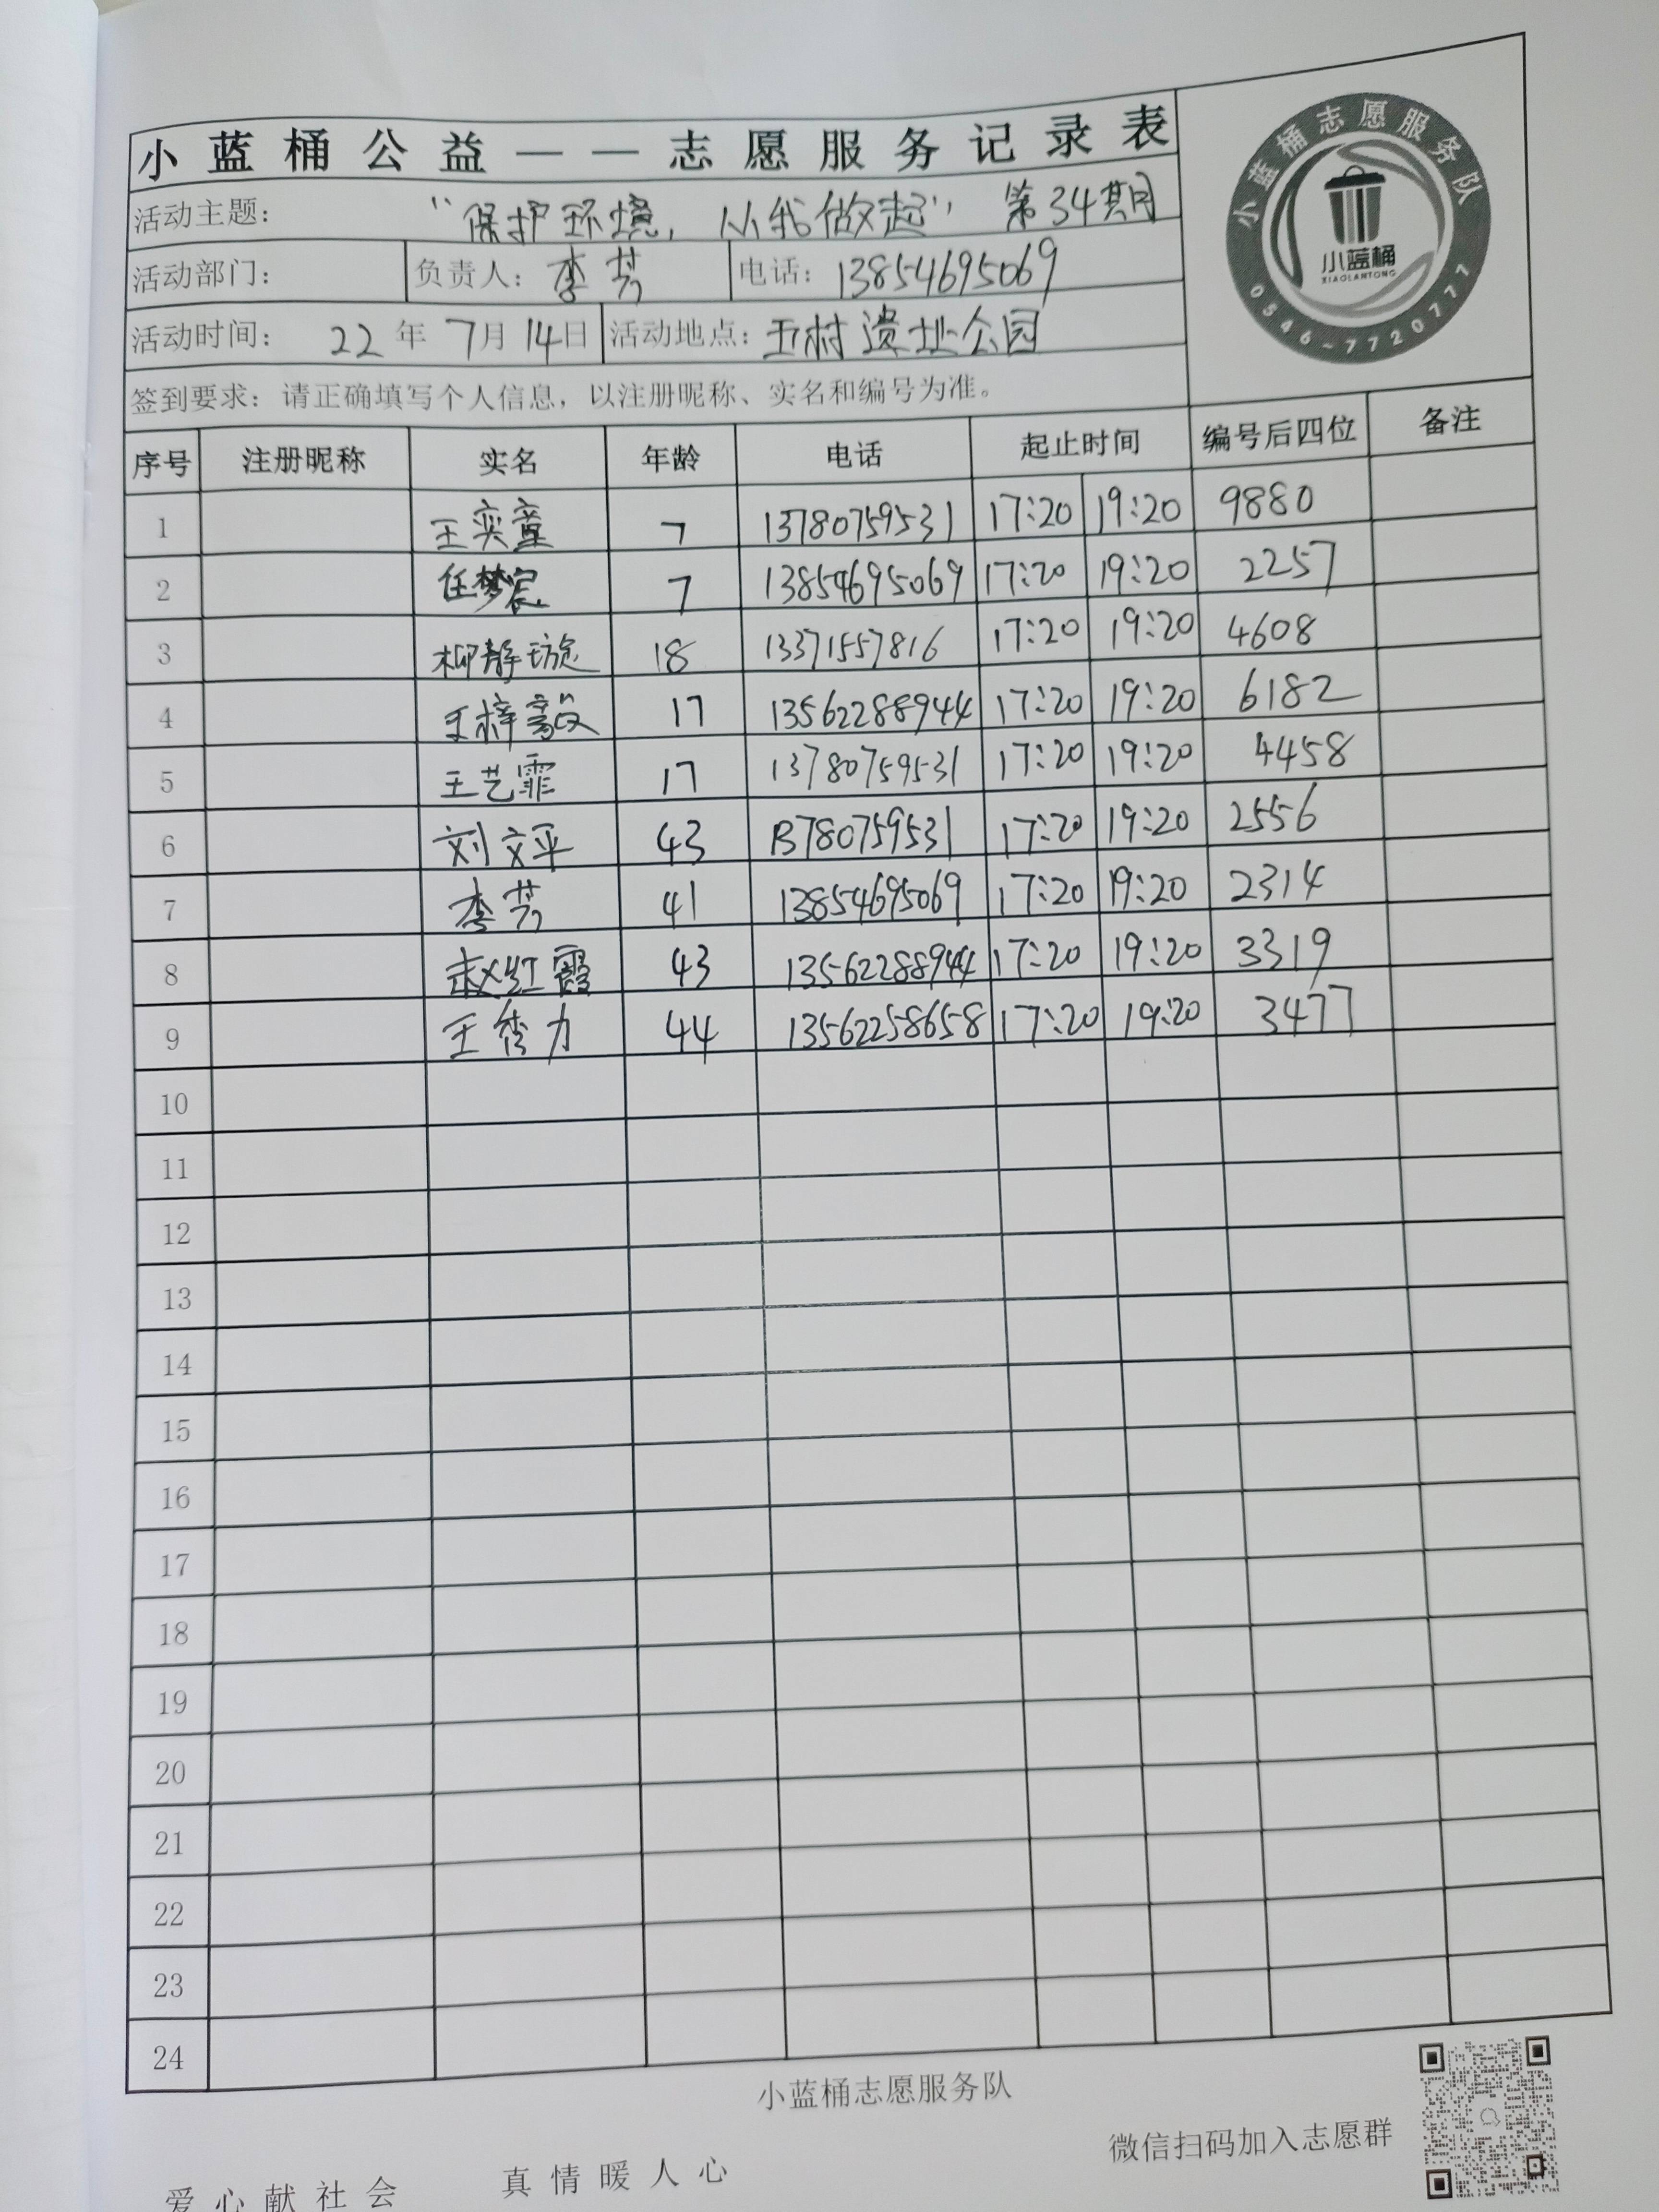 小蓝桶公益——志愿服务记录表
小蓝桶志愿服务队
小蓝桶
XIAOLANTONG
0546-7720777
活动主题： “保护环境，从我做起” 第34期
活动部门： 负责人：李芳 电话：13854695069
活动时间： 22年 7月 14日 活动地点：王村遗址公园
签到要求：请正确填写个人信息，以注册昵称、实名和编号为准。
序号 注册昵称 实名 年龄 电话 起止时间 编号后四位 备注
1 王奕童 7 13780759531 17:20 19:20 9880
2 任梦宸 7 13854695069 17:20 19:20 2257
3 柳静璇 18 13371557816 17:20 19:20 4608
4 王梓 17 13562288944 17:20 19:20 6182
5 王艺霏 17 13780759531 17:20 19:20 4458
6 刘文平 43 13780759531 17:20 19:20 2556
7 李芳 41 13854695069 17:20 19:20 2314
8 赵红霞 43 13562288944 17:20 19:20 3319
9 王秀力 44 13562258658 17:20 19:20 3477
10
11
12
13
14
15
16
17
18
19
20
21
22
23
24
小蓝桶志愿服务队
微信扫码加入志愿群
爱心献社会 真情暖人心